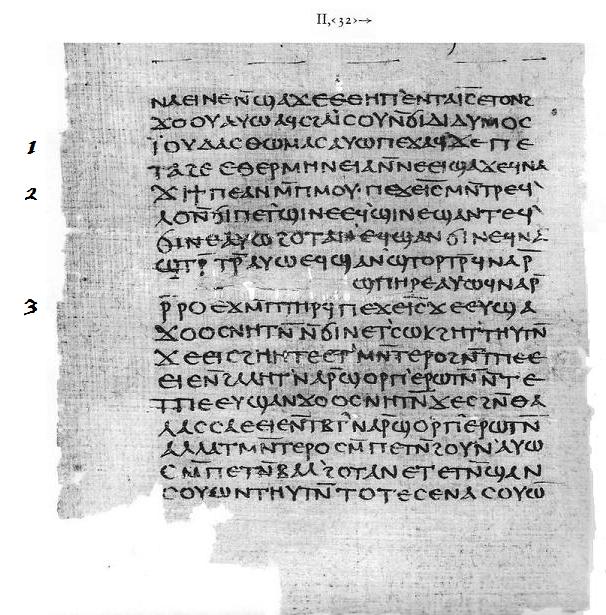 II,<32>→
ⲛⲁⲉⲓⲛⲉⲛ̄ϣⲁϫⲉⲉⲑⲏⲡ'ⲉⲛⲧⲁⲓ̅ⲥ̅ⲉⲧⲟⲛϩ
ϫⲟⲟⲩⲁⲩⲱⲁϥⲥϩⲁⲓⲥⲟⲩⲛ̄ϭⲓⲇⲓⲇⲩⲙⲟⲥ
1 ⲓ̈ⲟⲩⲇⲁⲥⲑⲱⲙⲁⲥⲁⲩⲱⲡⲉϫⲁϥϫⲉⲡⲉ
ⲧⲁϩⲉⲉⲑⲉⲣⲙⲏⲛⲉⲓⲁⲛ̄ⲛⲉⲉⲓϣⲁϫⲉϥⲛⲁ
2 ϫⲓϯⲡⲉⲁⲛⲙ̄ⲡⲙⲟⲩ·ⲡⲉϫⲉⲓ̅ⲥ̅ⲙⲛ̄ⲧⲣⲉϥ'
ⲗⲟⲛ̄ϭⲓⲡⲉⲧ'ϣⲓⲛⲉⲉϥϣⲓⲛⲉϣⲁⲛⲧⲉϥ'
ϭⲓⲛⲉⲁⲩⲱϩⲟⲧⲁⲛ'ⲉϥϣⲁⲛϭⲓⲛⲉϥⲛⲁ
ϣⲧⲣ̄ⲧⲣ̄ⲁⲩⲱⲉϥϣⲁⲛϣⲧⲟⲣⲧⲣ̄ϥⲛⲁⲣ̄
ϣⲡⲏⲣⲉⲁⲩⲱϥⲛⲁⲣ̄
ⲣ̄ⲣⲟⲉϫⲙ̄ⲡⲧⲏⲣϥ
3 ⲡⲉϫⲉⲓ̅ⲥ̅ϫⲉⲉⲩϣⲁ
ϫⲟⲟⲥⲛⲏⲧⲛ̄ⲛ̄ϭⲓⲛⲉⲧ'ⲥⲱⲕϩⲏⲧ'ⲑⲏⲩⲧⲛ̄
ϫⲉⲉⲓⲥϩⲏⲏⲧⲉⲉⲧ'ⲙⲛ̄ⲧⲉⲣⲟϩⲛ̄ⲧⲡⲉⲉ
ⲉⲓⲉⲛ̄ϩⲁⲗⲏⲧ'ⲛⲁⲣ̄ϣⲟⲣⲡ'ⲉⲣⲱⲧⲛ̄ⲛ̄ⲧⲉ
ⲧⲡⲉⲉⲩϣⲁⲛϫⲟⲟⲥⲛⲏⲧⲛ̄ϫⲉⲥϩⲛ̄ⲑⲁ
ⲗⲁⲥⲥⲁⲉⲉⲓⲉⲛ̄ⲧⲃⲧ'ⲛⲁⲣ̄ϣⲟⲣⲡ'ⲉⲣⲱⲧⲛ̄
ⲁⲗⲗⲁⲧⲙⲛ̄ⲧⲉⲣⲟⲥⲙ̄ⲡⲉⲧⲛ̄ϩⲟⲩⲛ'ⲁⲩⲱ
ⲥⲙ̄ⲡⲉⲧⲛ̄ⲃⲁⲗ'ϩⲟⲧⲁⲛⲉⲧⲉⲧⲛ̄ϣⲁⲛ
ⲥⲟⲩⲱⲛⲧⲏⲩⲧⲛ̄ⲧⲟⲧⲉⲥⲉⲛⲁⲥⲟⲩⲱ